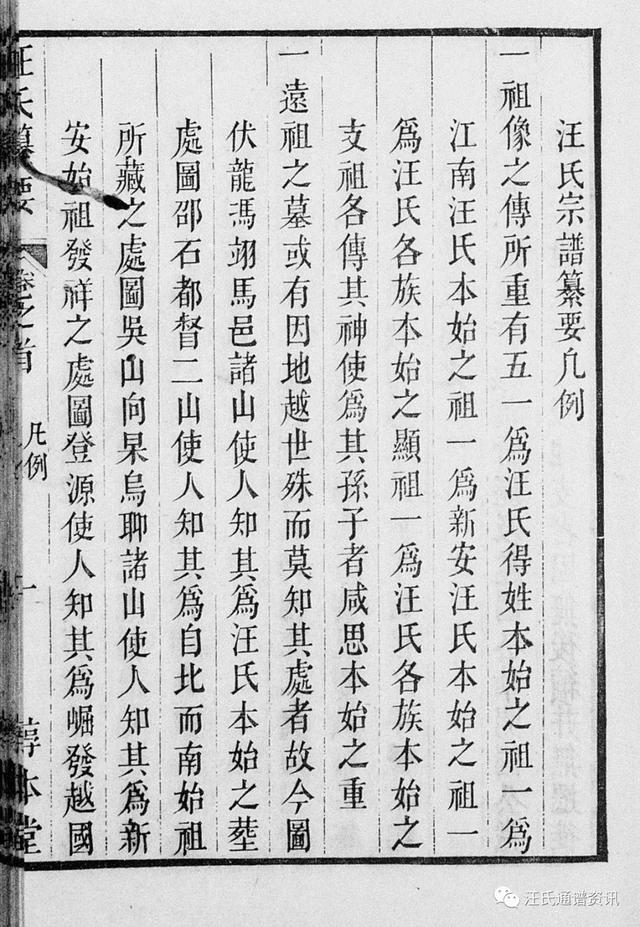 汪氏宗譜纂要凡例
一祖像之傳所重有五一爲汪氏得姓本始之祖一爲
江南汪氏本始之祖一爲新安汪氏本始之祖一
爲汪氏各族本始之顯祖一爲汪氏各族本始之
支祖各傳其神使爲其孫子者咸思本始之重
一遠祖之墓或有因地越世殊而莫知其處者故今圖
伏龍馮翊馬邑諸山使人知其爲汪氏本始之塟
處圖邵石都督二山使人知其爲自北而南始祖
所藏之處圖吳山向杲烏聊諸山使人知其爲新
安始祖發祥之處圖登源使人知其爲崛發越國
汪氏纂要 卷之首 凡例 一 敦本堂
汪氏通谱资讯